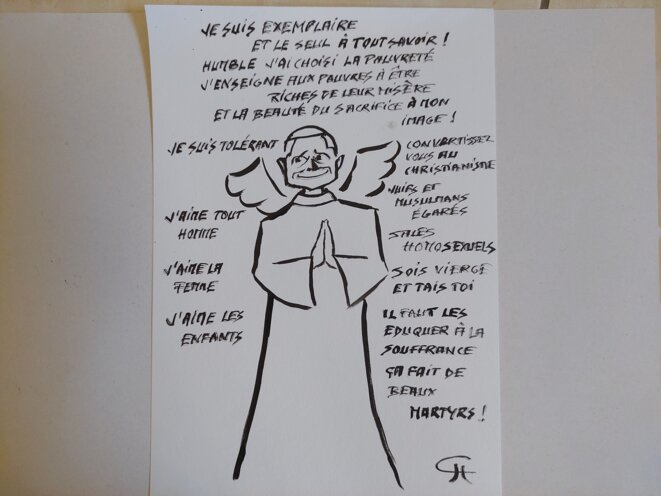 JE SUIS EXEMPLAIRE
ET LE SEUL À TOUT SAVOIR !
HUMBLE J'AI CHOISI LA PAUVRETÉ
J'ENSEIGNE AUX PAUVRES À ÊTRE
RICHES DE LEUR MISÈRE
ET LA BEAUTÉ DU SACRIFICE À MON
IMAGE !
JE SUIS TOLÉRANT
CONVERTISSEZ
VOUS AU
CHRISTIANISME
JUIFS ET
MUSULMANS
ÉGARÉS
J'AIME TOUT
HOMME
SALES
HOMOSEXUELS
J'AIME LA
FEMME
SOIS VIERGE
ET TAIS TOI
J'AIME LES
ENFANTS
IL FAUT LES
EDUQUER À LA
SOUFFRANCE
ÇA FAIT DE
BEAUX
MARTYRS !